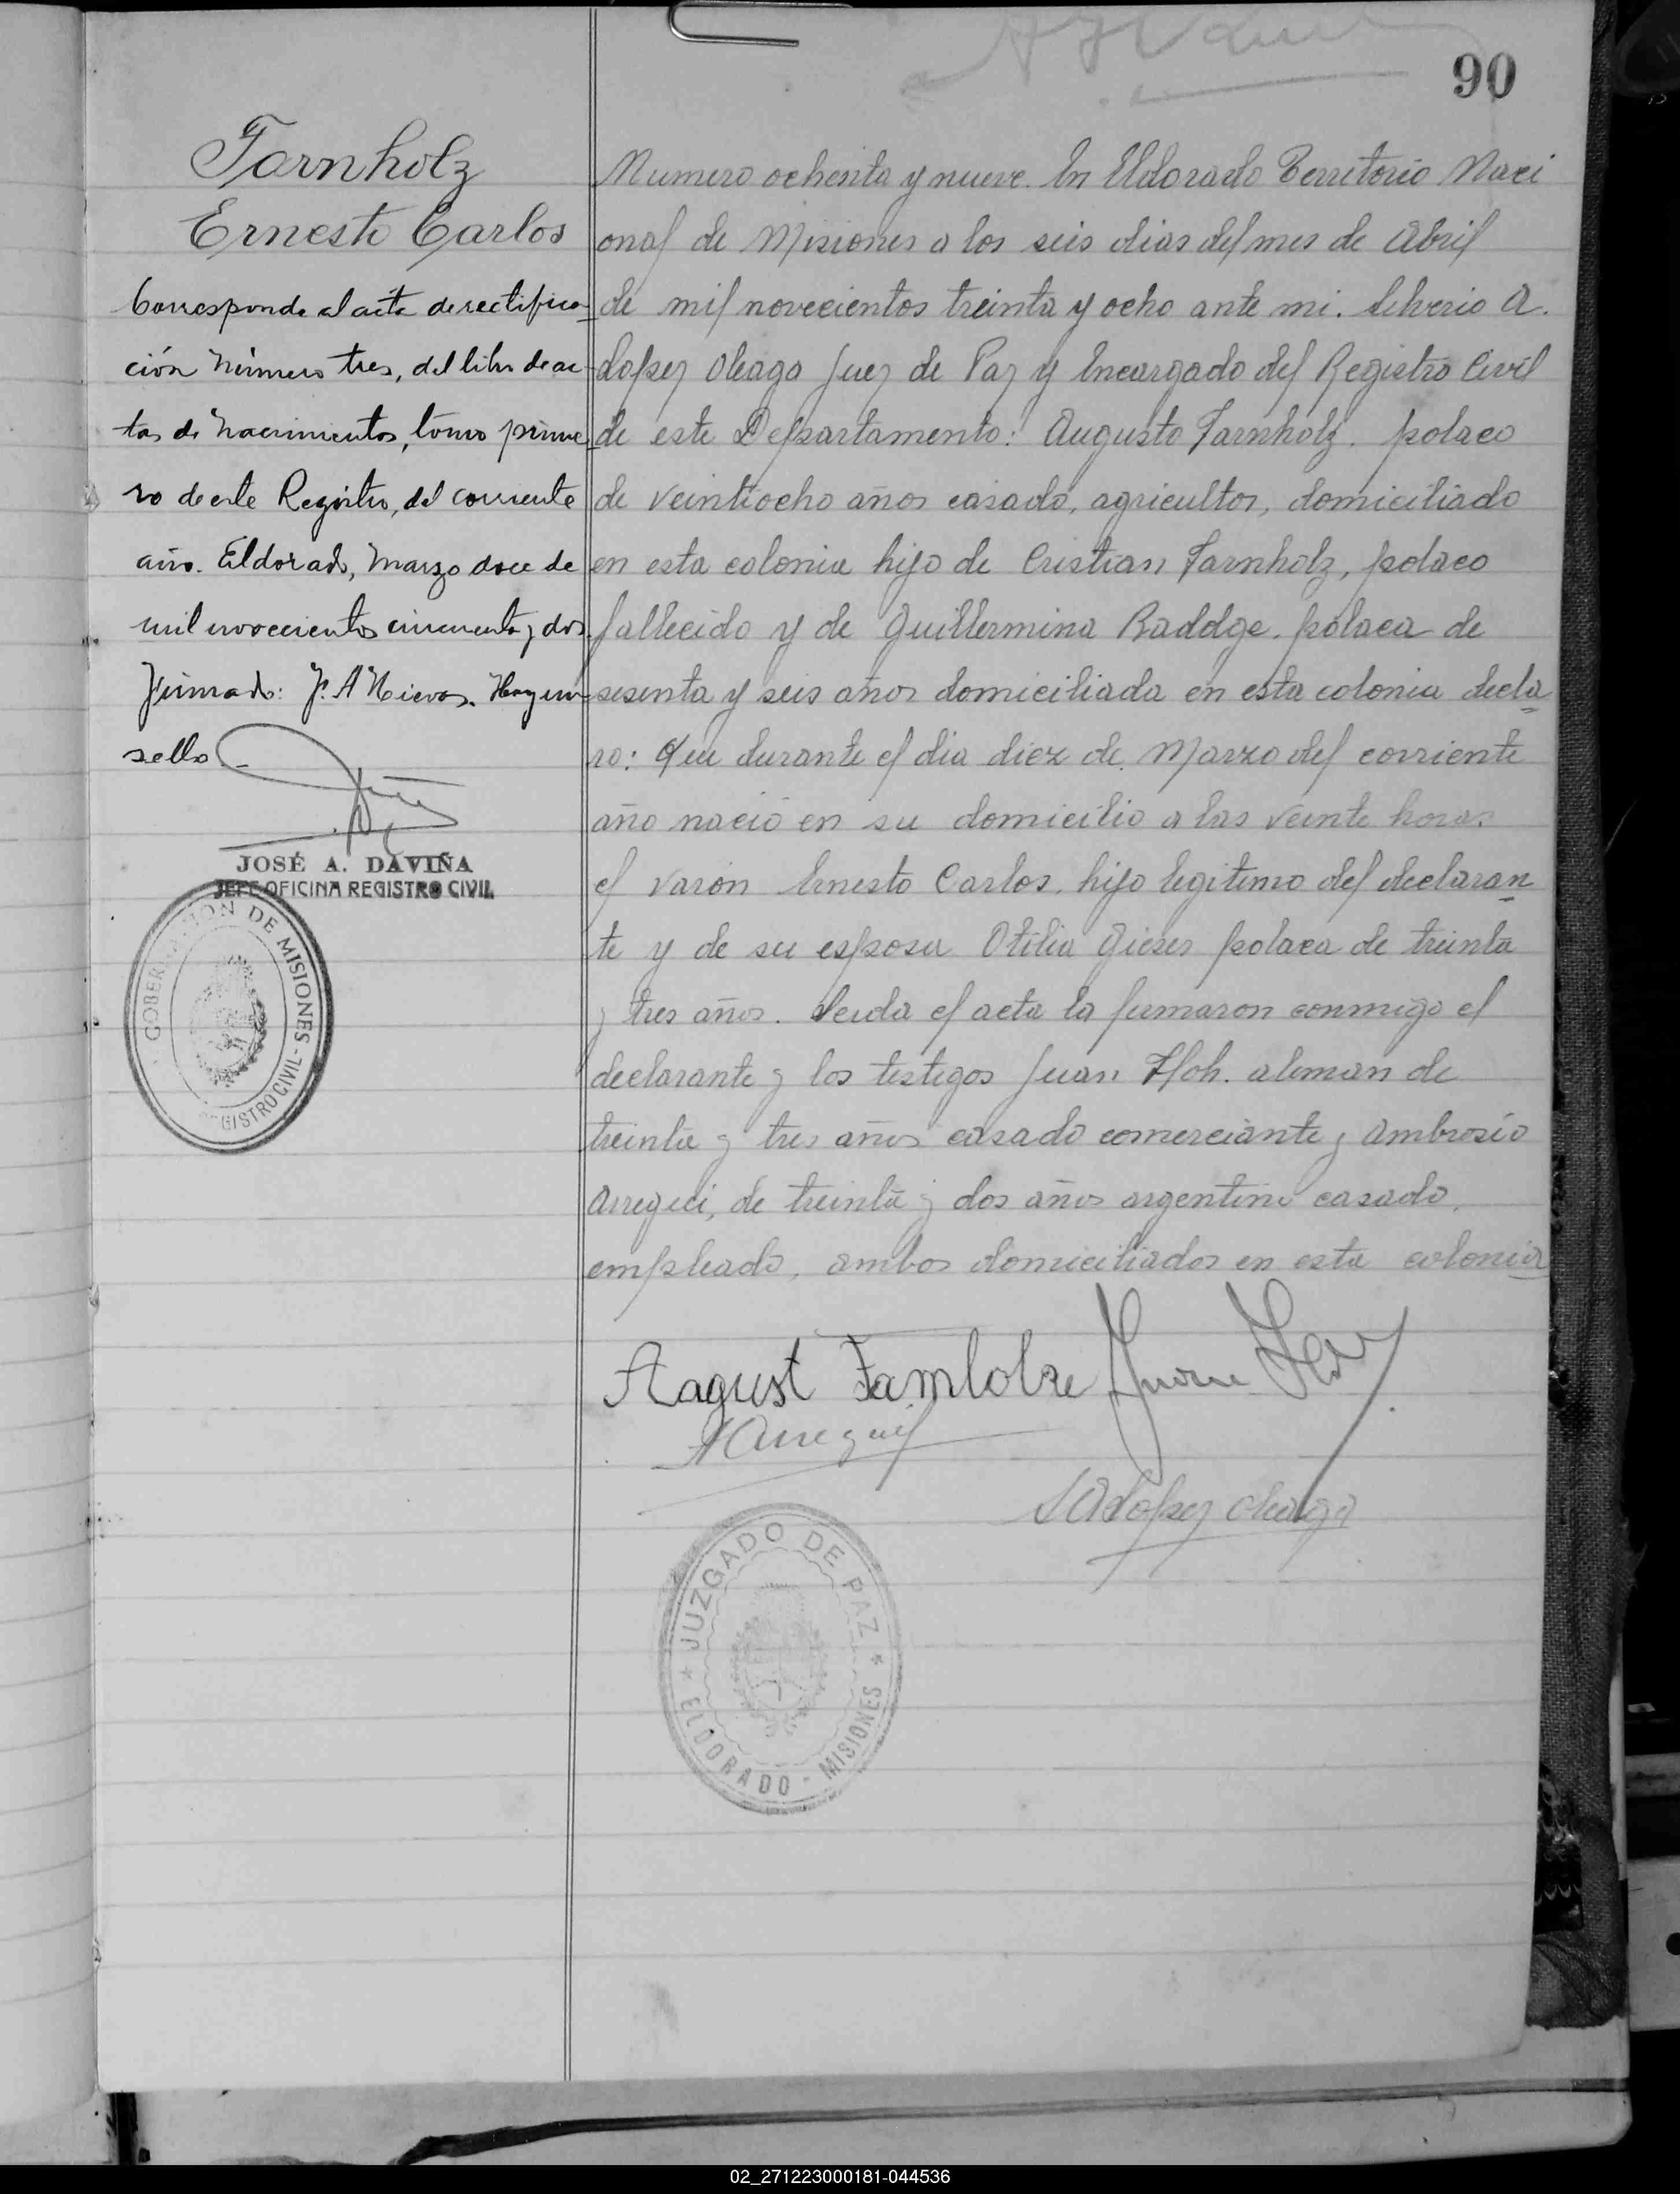 90
Farnholz
Ernesto Carlos
Corresponde al acta de rectifica-
ción número tres, del libro de ac-
tas de nacimientos, tomo prime-
ro de este Registro, del corriente
año. Eldorado, Marzo doce de
mil novecientos cincuenta y dos.
Firmado: J. A Nieves. Hay un
sello
JOSÉ A. DAVIÑA
JEFE OFICINA REGISTRO CIVIL
GOBERNACION DE MISIONES - REGISTRO CIVIL -
Numero ochenta y nueve. En Eldorado Territorio Naci
onal de Misiones a los seis dias del mes de Abril
de mil novecientos treinta y ocho ante mi. Silverio A.
Lopez Oleaga Juez de Paz y Encargado del Registro Civil
de este Departamento: Augusto Farnholz. polaco
de veintiocho años casado, agricultor, domiciliado
en esta colonia hijo de Cristian Farnholz, polaco
fallecido y de Guillermina Raddge. polaca de
sesenta y seis años domiciliada en esta colonia decla
ro: Que durante el dia diez de Marzo del corriente
año nació en su domicilio a las veinte horas
el varon Ernesto Carlos. hijo legitimo del declaran
te y de su esposa Otilia Gieser polaca de treinta
y tres años. Leida el acta la firmaron conmigo el
declarante y los testigos Juan Hoh. aleman de
treinta y tres años casado comerciante y Ambrosio
Arregui, de treinta y dos años argentino casado,
empleado, ambos domiciliados en esta colonia
Aagust Farnholze Juan
A Arregui
S A Lopez Oleaga
JUZGADO DE PAZ * ELDORADO - MISIONES *
02_271223000181-044536